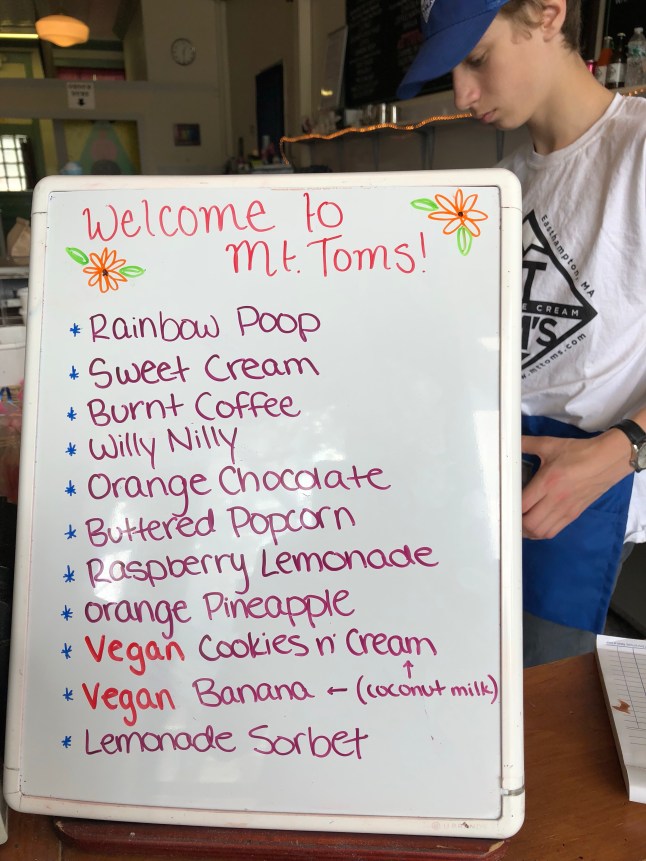 Welcome to
Mt. Toms!
* Rainbow Poop
* Sweet Cream
* Burnt Coffee
* Willy Nilly
* Orange Chocolate
* Buttered Popcorn
* Raspberry Lemonade
* orange Pineapple
* Vegan Cookies n' Cream
↑
* Vegan Banana ← (coconut milk)
* Lemonade Sorbet
Easthampton, MA
T
E CREAM
M'S
.mttoms.com